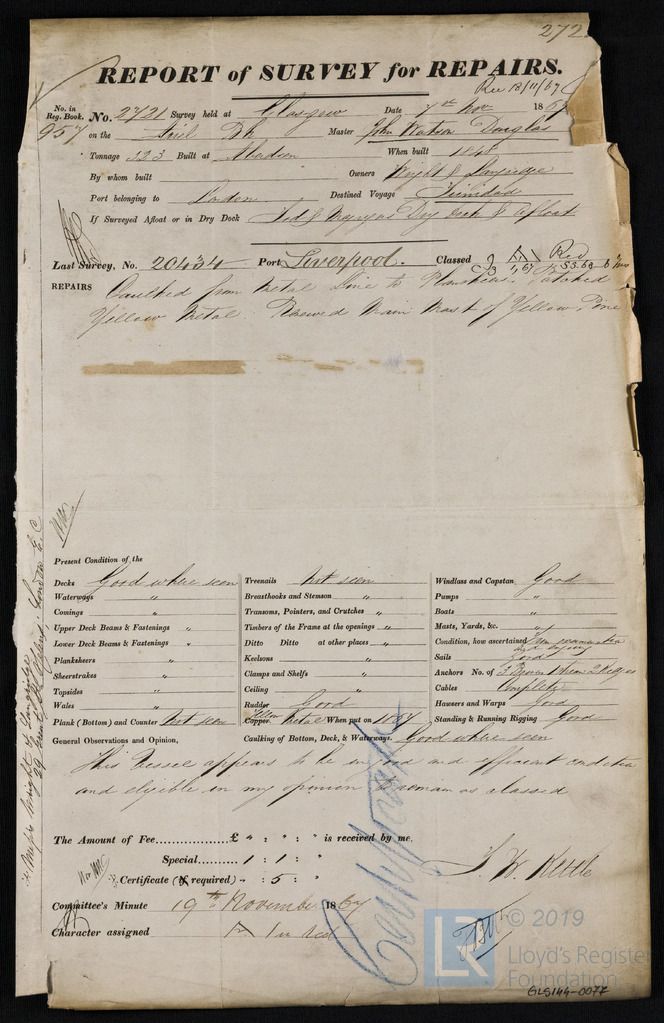 272
REPORT of SURVEY for REPAIRS.
Rec 18/11/67
No. in Reg. Book. No. 2721 Survey held at Glasgow Date 7th Nov 1867
957 on the Bk Master John Watson Douglas
Tonnage 323 Built at Aberdeen When built 1848
By whom built Owners Wright &
Port belonging to London Destined Voyage Trinidad
If Surveyed Afloat or in Dry Dock Dry Dock & Afloat
Last Survey, No. 20434 Port Liverpool. Classed Red
REPAIRS Caulked from Metal Line to Plansheer. Patched
Yellow Metal. Renewed Main Mast of Yellow Pine
Present Condition of the
Decks Good where seen Treenails Not seen Windlass and Capstan Good
Waterways " Breasthooks and Stemson " Pumps "
Comings " Transoms, Pointers, and Crutches " Boats "
Upper Deck Beams & Fastenings " Timbers of the Frame at the openings " Masts, Yards, &c. "
Lower Deck Beams & Fastenings " Ditto Ditto at other places " Condition, how ascertained
Planksheers " Keelsons " Sails Good
Sheerstrakes " Clamps and Shelfs " Anchors No. of
Topsides " Ceiling " Cables Complete
Wales " Rudder Good Hawsers and Warps Good
Plank (Bottom) and Counter Not seen Copper Yellow Metal When put on 1867 Standing & Running Rigging Good
General Observations and Opinion, Caulking of Bottom, Deck, & Waterways. Good where seen
This Vessel appears to be in good and efficient condition
and eligible in my opinion to remain as classed
The Amount of Fee............... £ " : " : " is received by me,
Special......... 1 : 1 : "
Certificate (if required) " : 5 : "
J. W. Kettle
Committee's Minute 19th November 1867
Character assigned in red
© 2019
LR
Lloyd's Register
Foundation
GLS144-0077